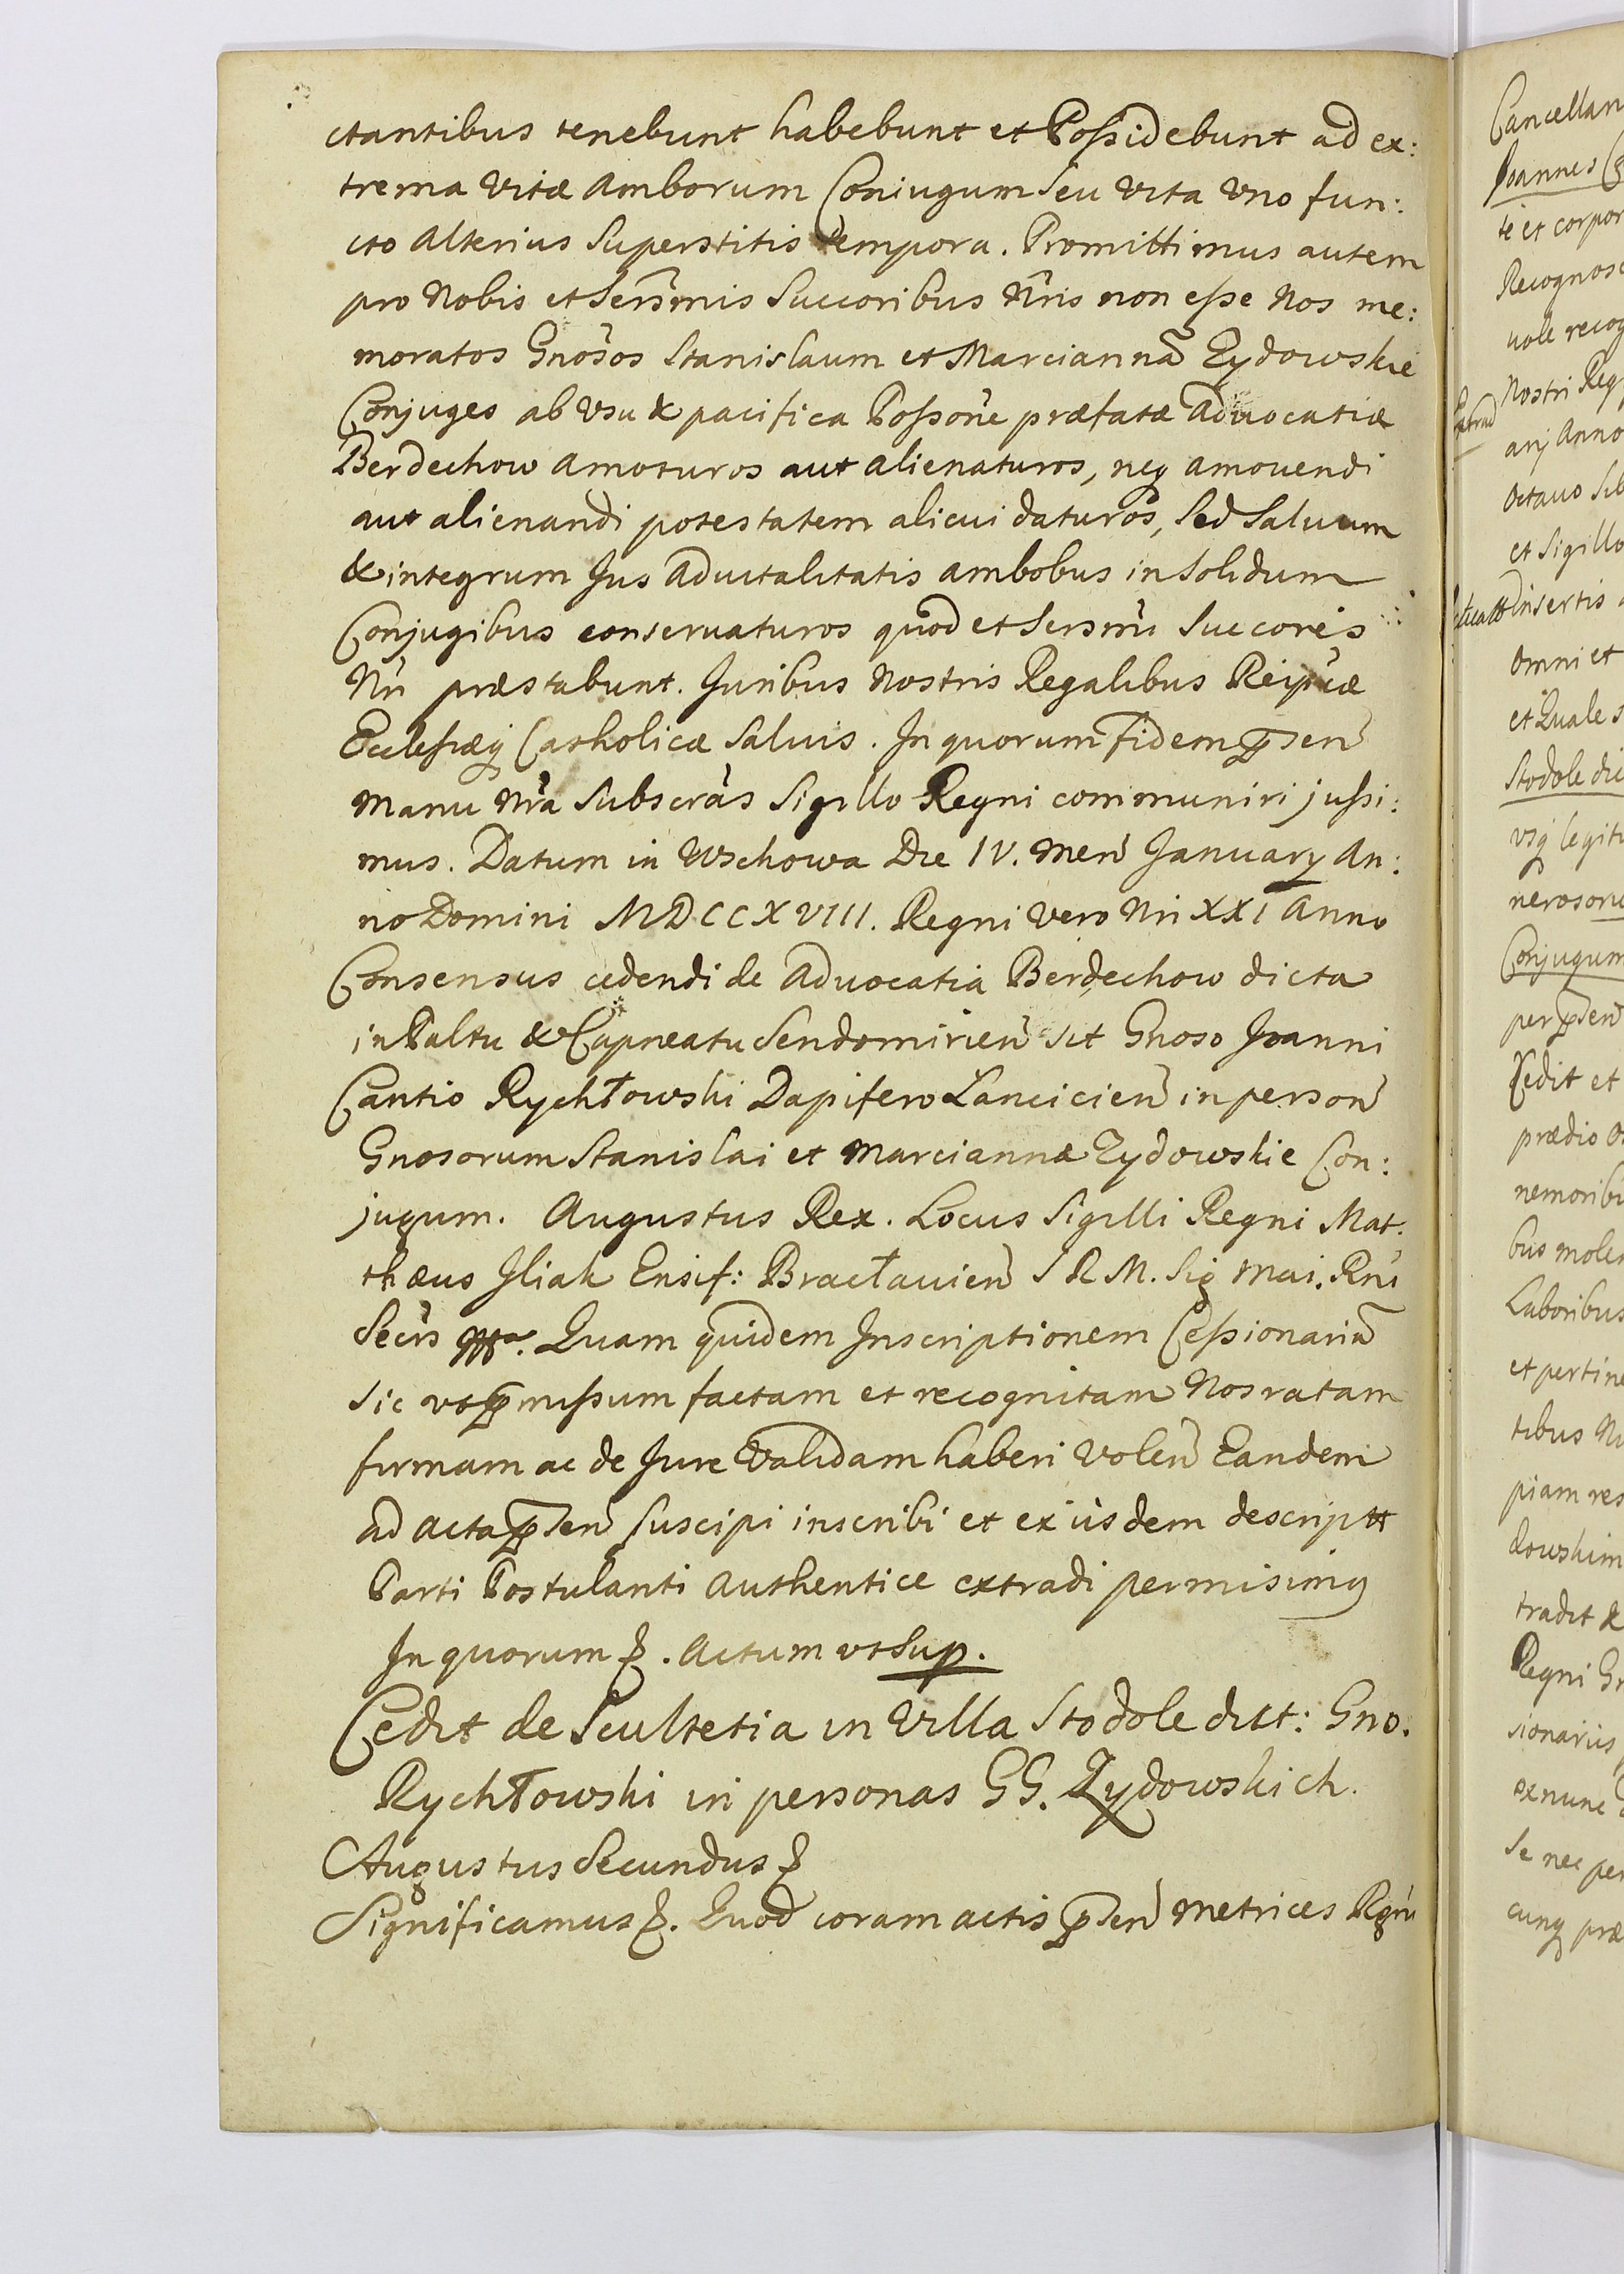 ctantibus tenebunt habebunt et Possidebunt ad ex:
trema vitæ Amborum Coniugum seu vita vno fun:
cto Alterius Superstitis tempora. Promittimus autem
pro Nobis et Serm̃is Succoribus Nr̃is non esse Nos me:
moratos Gnosos Stanislaum et Marciannã Zydowskie
Conjuges ab Vsu & pacifica Possoñe præfatæ Aduocatiæ
Berdechow Amoturos aut alienaturos, neq amouendi
aut alienandi potestatem alicui daturos, Sed Saluum
& integrum Jus Aduitalitatis ambobus in Solidum
Conjugibus conseruaturos quod et Sersmi Succores
Nri præstabunt. Juribus Nostris Regalibus Reipcæ
Ecclesiæq Catholicæ Saluis. In quorum fidem p̃sen
Manu Nra Subscras Sigillo Regni communiri jussi:
mus. Datum in Wschowa Die IV. Men January An:
no Domini MDCCXVIII. Regni vero Nri XXI Anno
Consensus cedendi de Aduocatia Berdechow dicta
in Paltu & Capneatu Sendomirien sit Gnoso Joanni
Cantio Rychłowski Dapifero Lancicien in person
Gnosorum Stanislai et Marciannæ Zydowskie Con:
jugum. Augustus Rex. Locus Sigilli Regni Mat:
thæus Iliak Ensif: Bracłauien S R M. Sig Mai. Rni
Secris mpp. Quam quidem Inscriptionem Cessionariã
sic vt p̃missum factam et recognitam Nos ratam
firmam ac de Jure Validam haberi Volen Eandem
ad acta p̃sen suscipi inscribi et ex iisdem descriptt
Parti Postulanti Authentice extradi permisimq
In quorum &. Actum vt Sup.
Cedit de Scultetia in Villa Stodole dict: Gno.
Rychłowski in personas GG. Zydowskich.
Augustus Secundus &
Significamus &. Quod coram actis p̃sen Metrices Rgni
Cancellari
Joannes
te et corpor
Recognosc
uole recog
Nostri Reg
arj Anno
Octauo Sib
et Sigillo
insertis
omni et
et Quale s
Stodole dic
vsq legiti
nerosoru
Conjugum
per p̃sen
Cedit et
prædio
nemoribu
bus molen
Laboribus
et pertine
tibus
piam res
dowskim
tradit &
Regni
sionarius
ex nunc
Se nec per
cunq præ